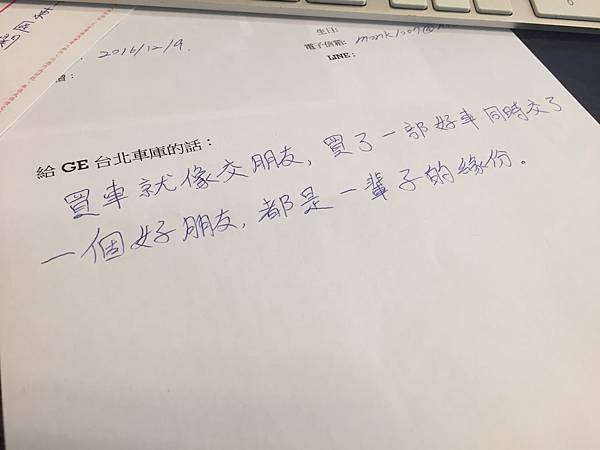 生日:
2016/12/9.
電子信箱:
LINE:
給 GE 台北車庫的話:
買車就像交朋友, 買了一部好車同時交了
一個好朋友, 都是一輩子的緣份。